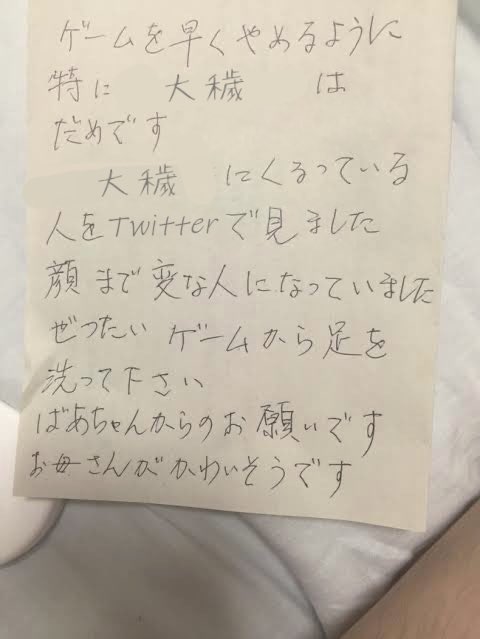 ゲームを早くやめるように
特に 大穢 は
だめです
大穢 にくるっている
人をTwitterで見ました
顔まで変な人になっていました
ぜったい ゲームから足を
洗って下さい
ばあちゃんからのお願いです
お母さんがかわいそうです